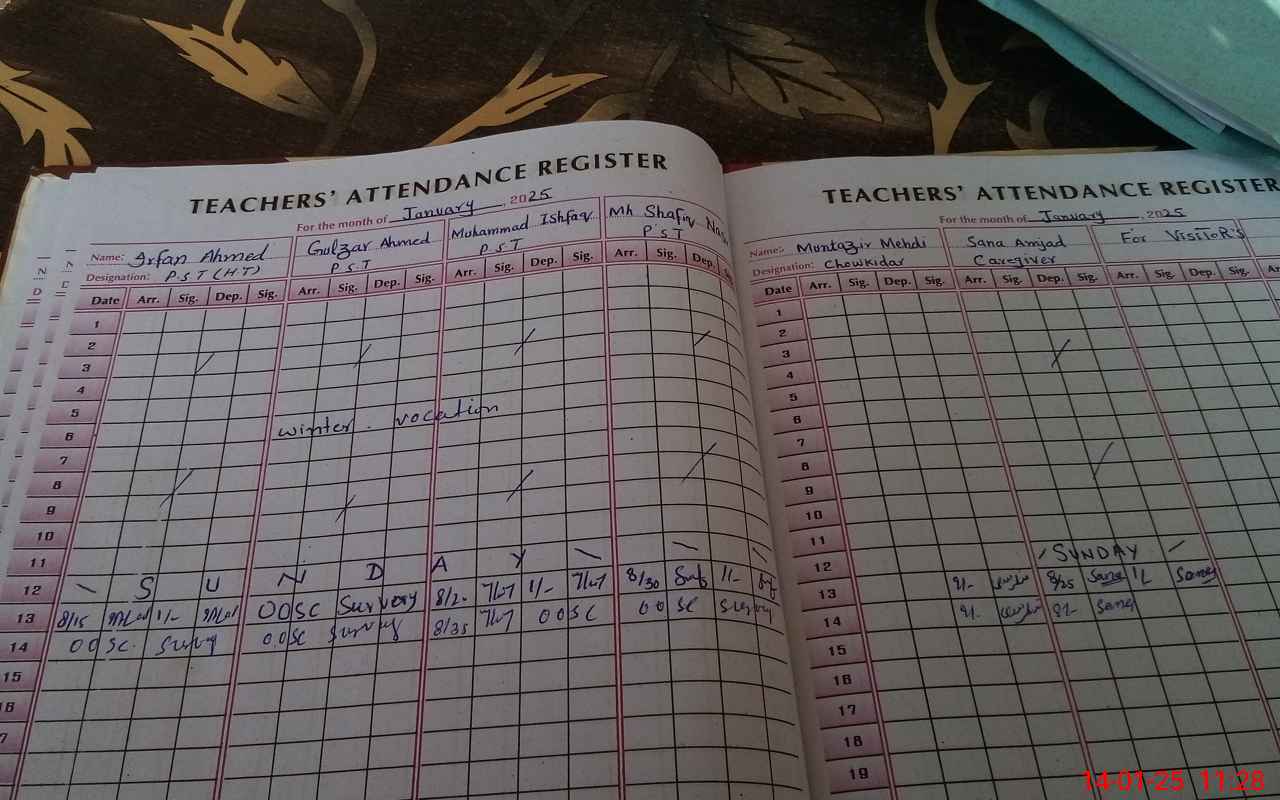 TEACHERS' ATTENDANCE REGISTER
For the month of January, 2025
Name: Irfan Ahmed Gulzar Ahmed Muhammad Ishfaq Mh Shafiq
Designation: P.S.T (HT) P.S.T P.S.T P.S.T
Date Arr. Sig. Dep. Sig. Arr. Sig. Dep. Sig. Arr. Sig. Dep. Sig. Arr. Sig. Dep.
1
2
3
4
5
winter vocation
6
7
8
9
10
11
12 S U N D A Y
13 8/15 1/- OOSC Survey 8/2. 1/- 8/30 1/-
14 OOSC. Survy OOSC Survey 8/35 OOSC OOSC Survey
15
16
7
TEACHERS' ATTENDANCE REGISTER
For the month of January, 2025
Name: Muntazir Mehdi Sana Amjad For VISITOR'S
Designation: Chowkidar Caregiver
Date Arr. Sig. Dep. Sig. Arr. Sig. Dep. Sig. Arr. Sig. Dep. Sig. Ar
1
2
3
4
5
6
7
8
9
10
11
12 SUNDAY
13 8/25 Sana 1/- Sana
14 8/- Sana
15
16
17
18
19
14-01-25 11:28